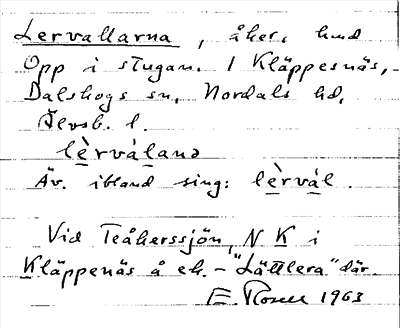 Lervallarna, åker, hmd
Opp i stugan. 1 Kläppesnäs,
Dalskogs sn, Nordals hd,
Älvsb. l.
lèrválana
Äv. ibland sing: lèrvál.
Vid Teåkerssjön, N K i
Kläppenäs å ek. - "Lättlera" där.
E. Rosell 1963